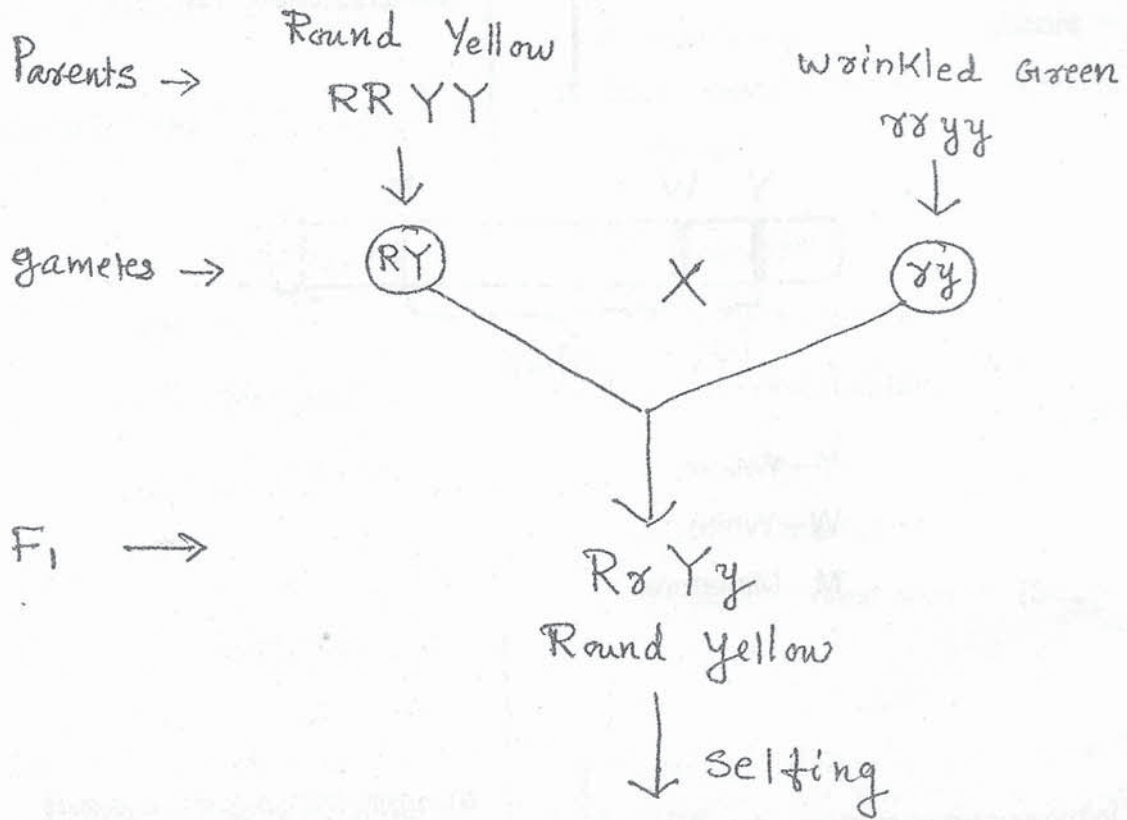 Parents →
Round Yellow
RRYY
Wrinkled Green
rryy
gametes →
RY
X
ry
F1 →
RrYy
Round Yellow
Selfing